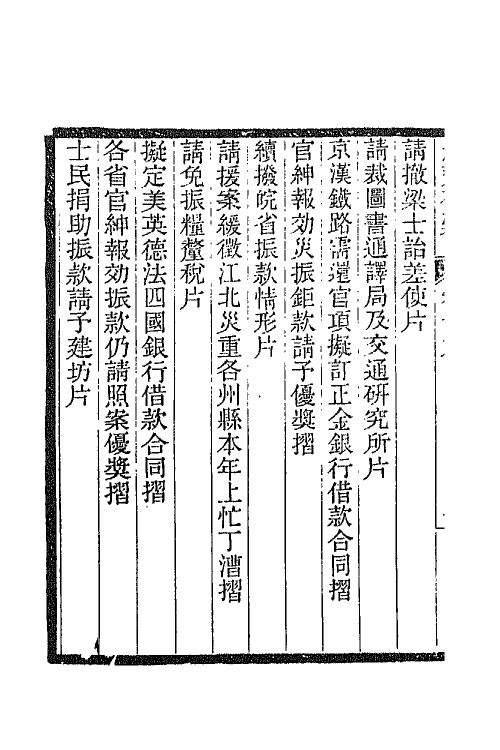 請撤梁士詒差使片
請裁圖書通譯局及交通研究所片
京漢鐵路需還官項擬訂正金銀行借款合同摺
官紳報効災振鉅款請予優奬摺
續撥皖省振款情形片
請援案緩徵江北災重各州縣本年上忙丁漕摺
請免振糧釐稅片
擬定美英德法四國銀行借款合同摺
各省官紳報効振款仍請照案優奬摺
士民捐助振款請予建坊片